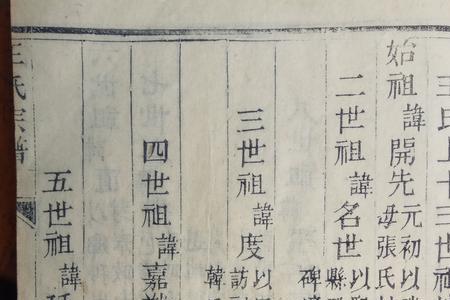 王氏上十三世
始祖諱開先元初以
母張氏
二世祖諱名世以
縣
碑
三世祖諱度以
訪
韓
四世祖諱嘉
五世祖諱
王氏宗譜